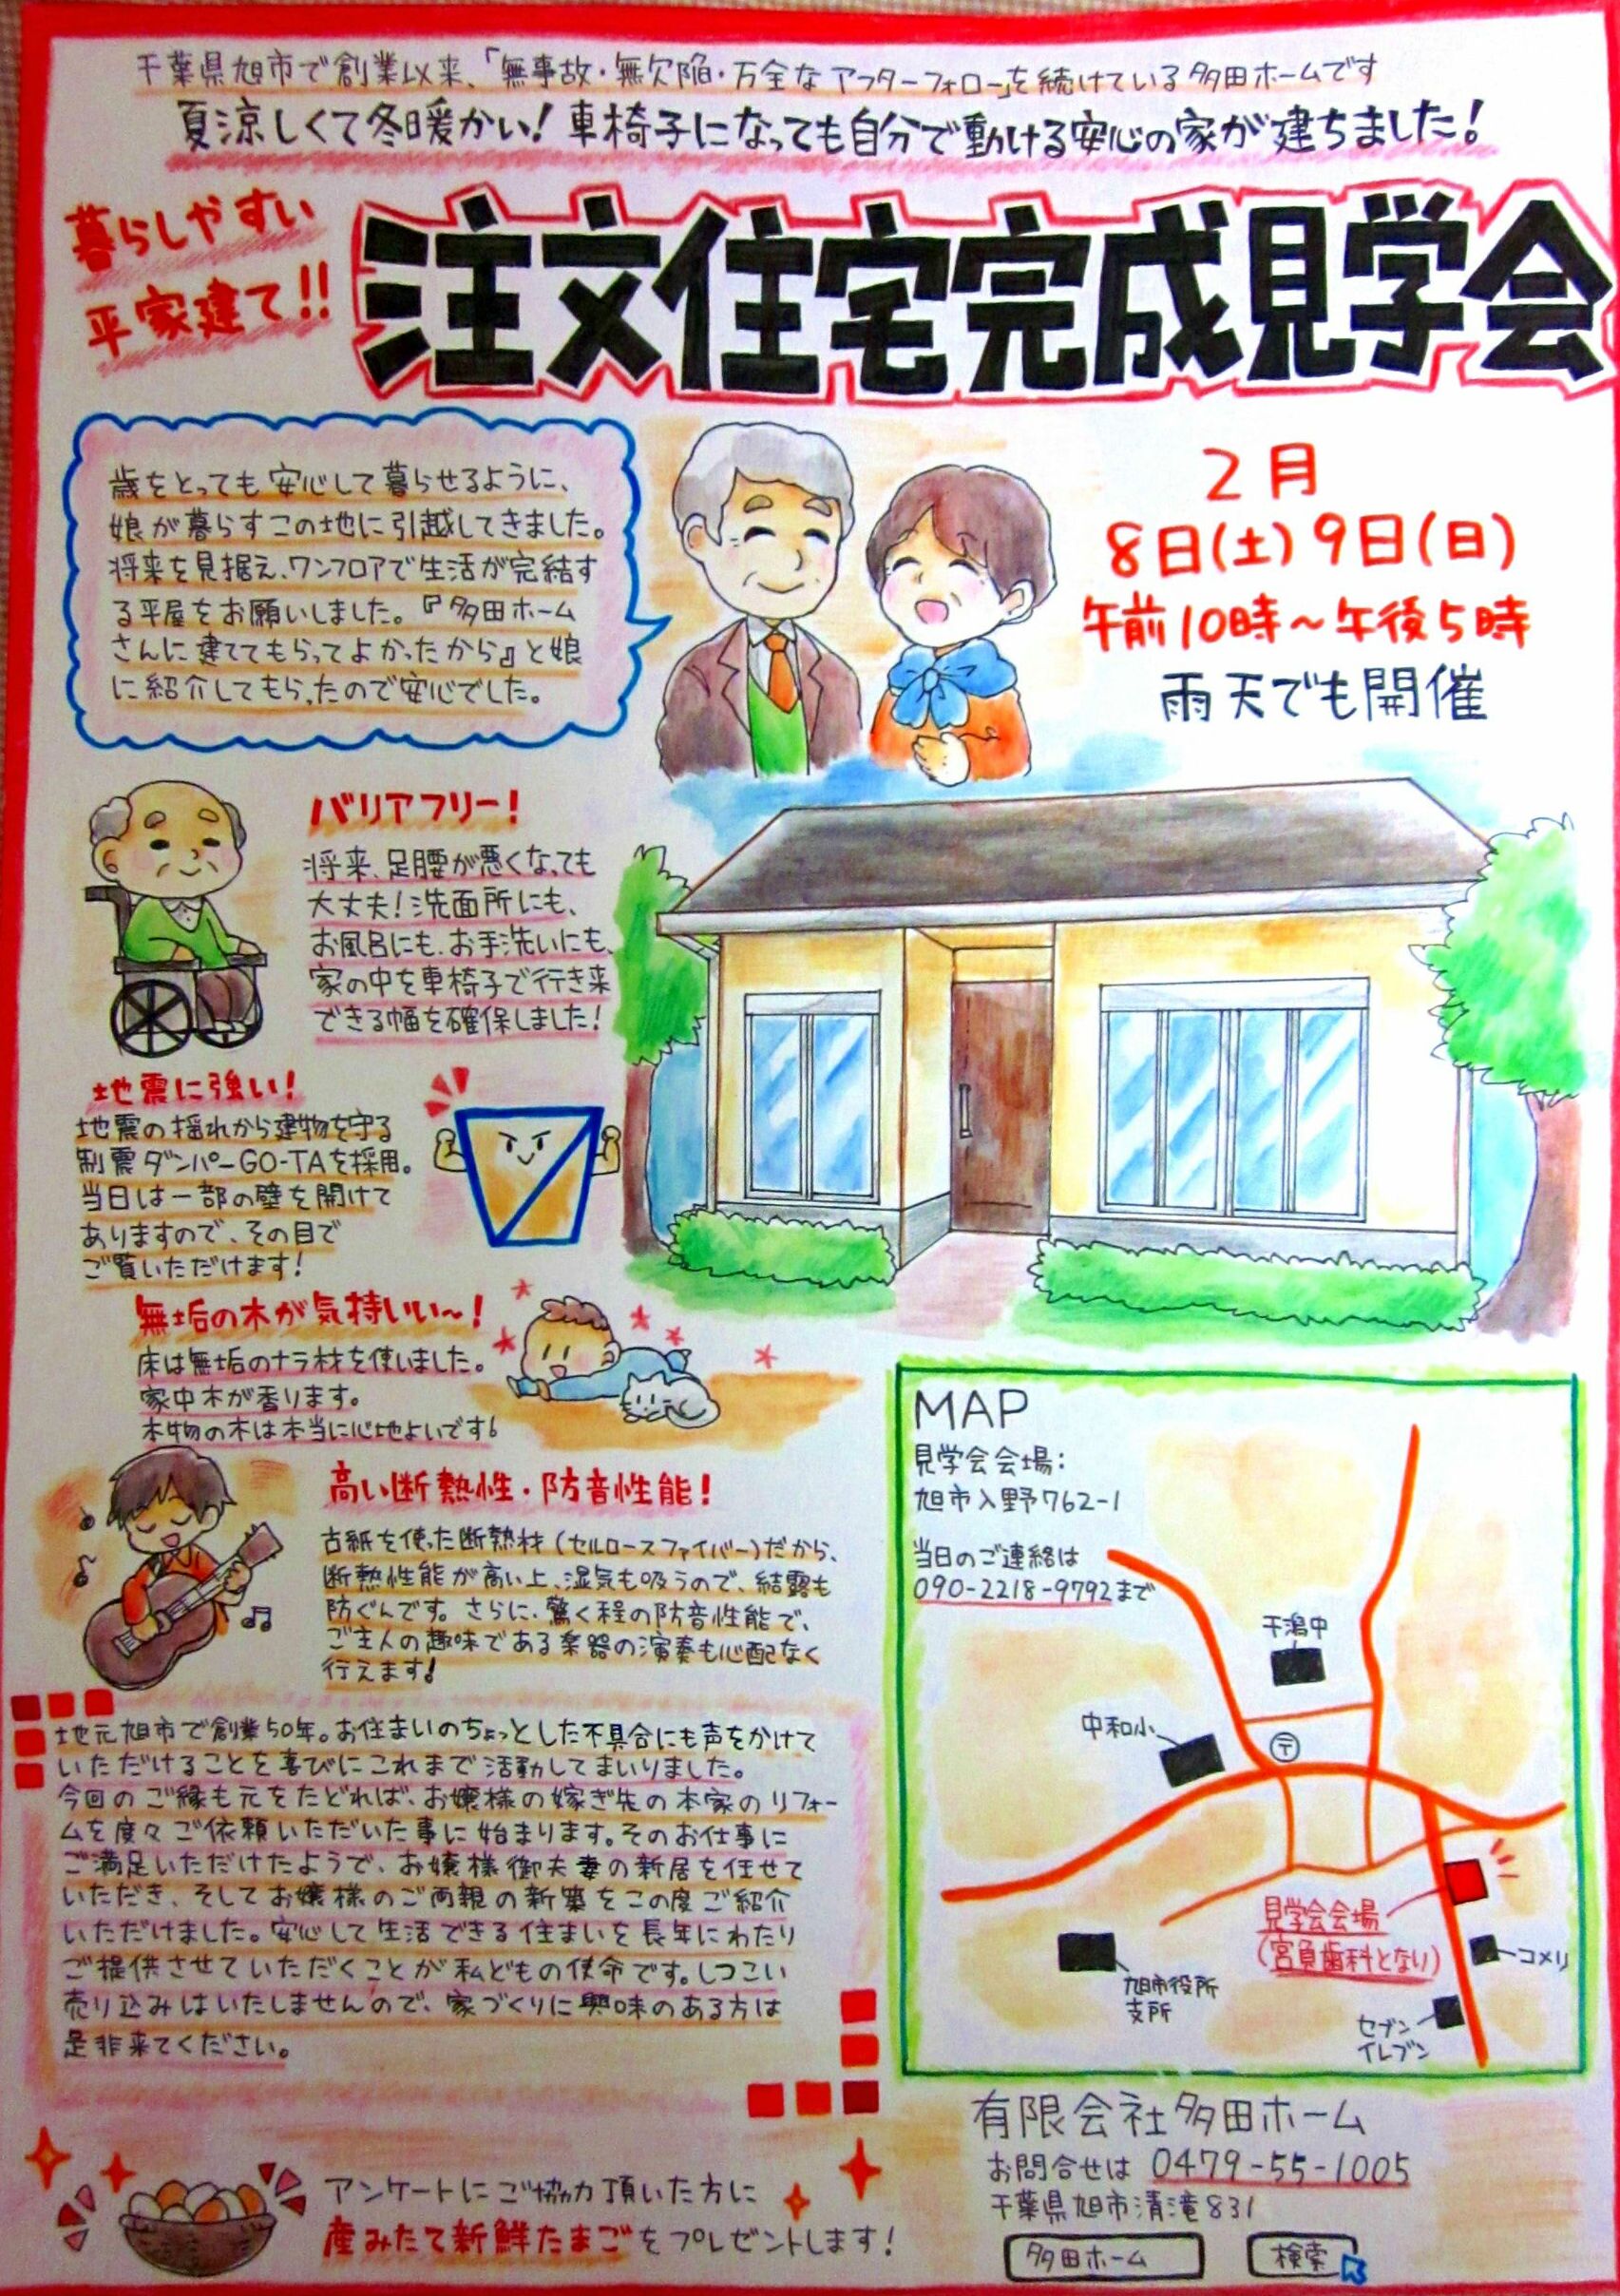 千葉県旭市で創業以来、「無事故・無欠陥・万全なアフターフォロー」を続けている多田ホームです
夏涼しくて冬暖かい！車椅子になっても自分で動ける安心の家が建ちました！
暮らしやすい
平家建て!!
注文住宅完成見学会
歳をとっても安心して暮らせるように、
娘が暮らすこの地に引越してきました。
将来を見据え、ワンフロアで生活が完結す
る平屋をお願いしました。『多田ホーム
さんに建ててもらってよかったから』と娘
に紹介してもらったので安心でした。
2月
8日(土)9日(日)
午前10時～午後5時
雨天でも開催
バリアフリー！
将来、足腰が悪くなっても
大丈夫！洗面所にも、
お風呂にも、お手洗いにも、
家の中を車椅子で行き来
できる幅を確保しました！
地震に強い！
地震の揺れから建物を守る
制震ダンパーGO-TAを採用。
当日は一部の壁を開けて
ありますので、その目で
ご覧いただけます！
無垢の木が気持いい～！
床は無垢のナラ材を使いました。
家中木が香ります。
本物の木は本当に心地よいです！
高い断熱性・防音性能！
古紙を使った断熱材（セルロースファイバー）だから、
断熱性能が高い上、湿気も吸うので、結露も
防ぐんです。さらに、驚く程の防音性能で、
ご主人の趣味である楽器の演奏も心配なく
行えます！
地元旭市で創業50年。お住まいのちょっとした不具合にも声をかけて
いただけることを喜びにこれまで活動してまいりました。
今回のご縁も元をたどれば、お嬢様の嫁ぎ先の本家のリフォー
ムを度々ご依頼いただいた事に始まります。そのお仕事に
ご満足いただけたようで、お嬢様御夫妻の新居を任せて
いただき、そしてお嬢様のご両親の新築をこの度ご紹介
いただけました。安心して生活できる住まいを長年にわたり
ご提供させていただくことが私どもの使命です。しつこい
売り込みはいたしませんので、家づくりに興味のある方は
是非来てください。
MAP
見学会会場：
旭市入野762-1
当日のご連絡は
090-2218-9792まで
干潟中
中和小
〒
見学会会場
(宮負歯科となり)
コメリ
旭市役所
支所
セブン
イレブン
有限会社多田ホーム
お問合せは 0479-55-1005
千葉県旭市清滝831
多田ホーム 検索
アンケートにご協力頂いた方に
産みたて新鮮たまごをプレゼントします！